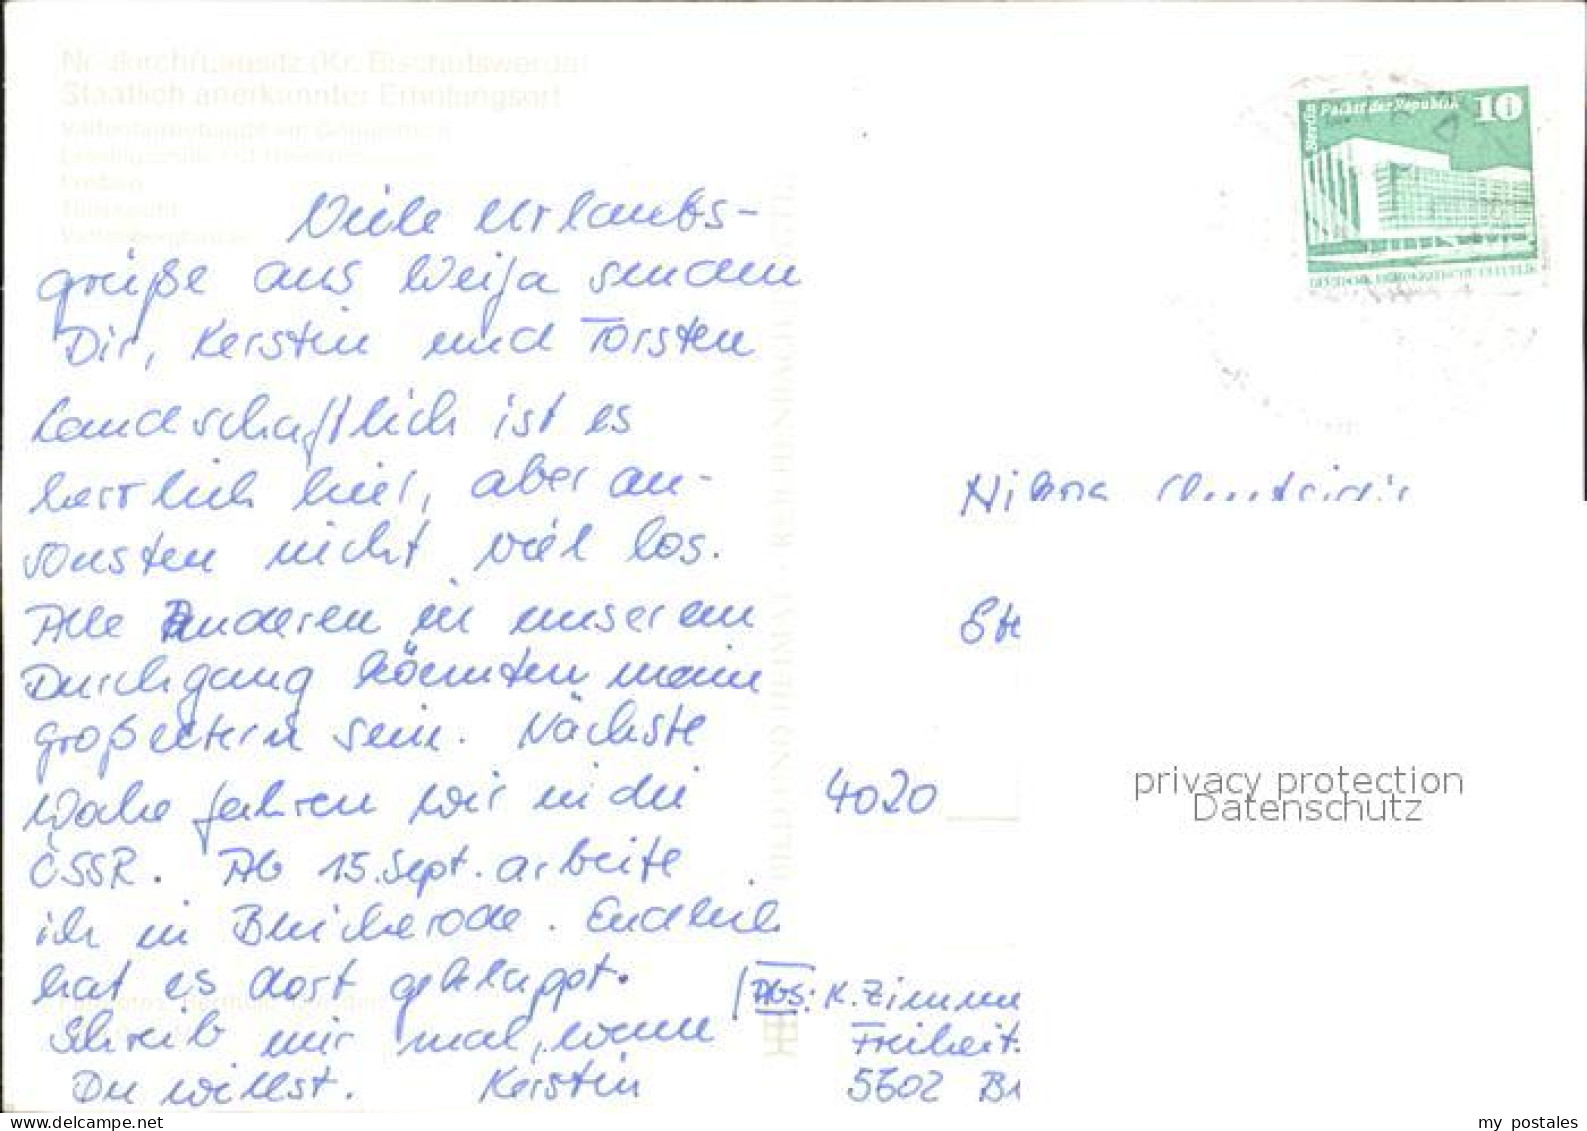 Neukirch/Lausitz (Kr. Bischofswerda)
Staatlich anerkannter Erholungsort
Berlin Palast der Republik 10
Viele Urlaubs-
grüße aus Weifa senden
Dir, Kerstin und Torsten
Landschaftlich ist es
herrlich hier, aber an-
sonsten nicht viel los.
Alle Anderen in unserem
Durchgang könnten meine
Großeltern sein. Nächste
Woche fahren wir in die
ČSSR. Ab 15. Sept. arbeite
ich in Bleicherode. Endlich
hat es dort geklappt.
Schreib mir mal, wenn
Du willst. Kerstin
BILD UND HEIMAT · REICHENBACH
4020
Abs: K. Zimme
Freiheit
5602 Bl
privacy protection
Datenschutz
my postales